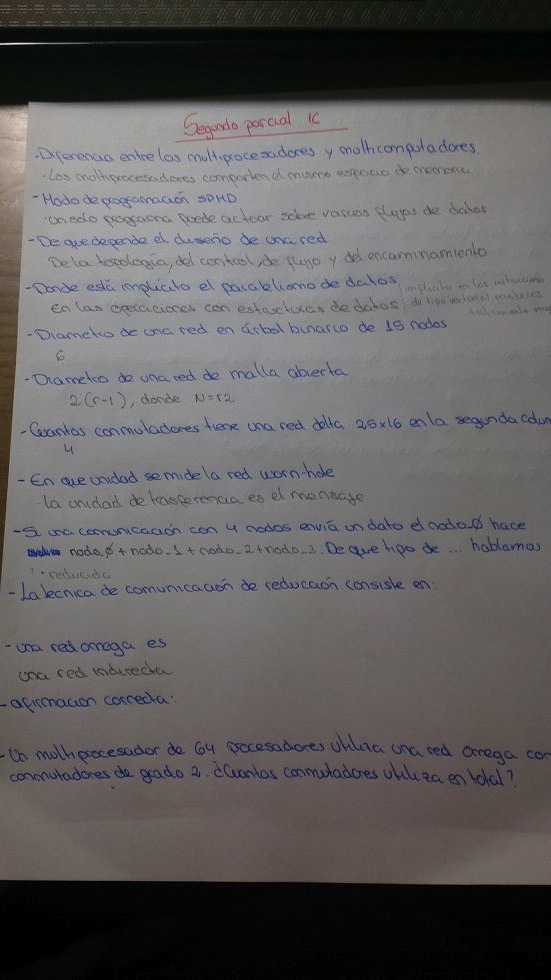 Segundo parcial IC
- Diferencia entre los multiprocesadores y multicomputadores.
· Los multiprocesadores comparten el mismo espacio de memoria
- Modo de programación SPMD
· Un solo programa puede actuar sobre varios flujos de datos
- De que depende el diseño de una red
De la topología, del control, de flujo y del encaminamiento
- Donde está implícito el paralelismo de datos
En las operaciones con estructuras de datos
implícito en las
de tipo vectorial
- Diametro de una red en árbol binario de 15 nodos
6
- Diametro de una red de malla abierta
2(r-1), donde N=r2
- Cuantos conmutadores tiene una red delta 25x16 en la segunda colum
4
- En que unidad se mide la red worn-hole
· la unidad de trasferencia es el mensaje
- Si una comunicación con 4 nodos envía un dato el nodo_0 hace
nodo_0 + nodo_1 + nodo_2 + nodo_3. De que tipo de ... hablamos
? · reducida
- La técnica de comunicación de reducción consiste en:
- una red omega es
una red indirecta
- afirmacion correcta:
- Un multiprocesador de 64 procesadores utiliza una red omega con
conmutadores de grado 2. ¿Cuantos conmutadores utiliza en total?